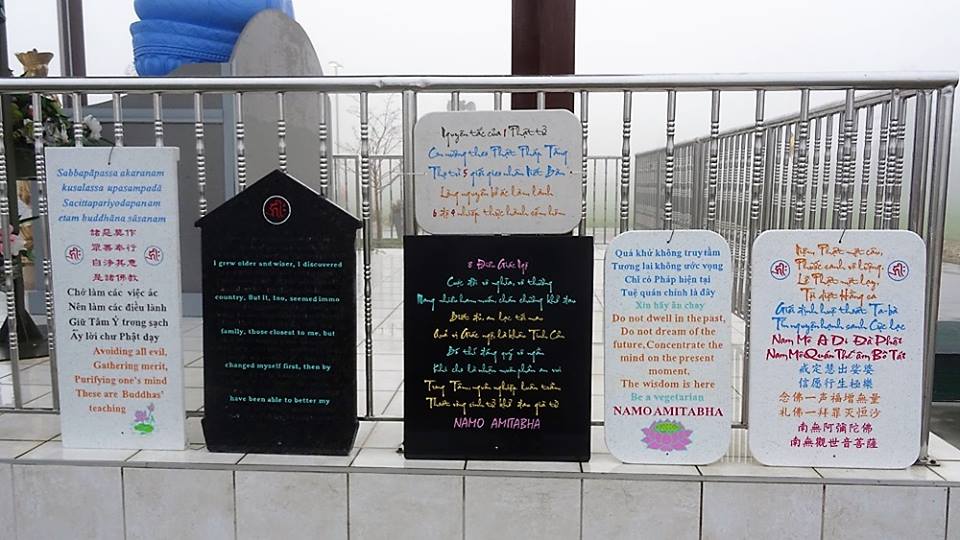 Sabbapāpassa akaranam
kusalassa upasampadā
Sacittapariyodapanam
etam buddhāna sāsanam
諸惡莫作
眾善奉行
自淨其意
是諸佛教
Chớ làm các việc ác
Nên làm các điều lành
Giữ Tâm Ý trong sạch
Ấy lời chư Phật dạy
Avoiding all evil,
Gathering merit,
Purifying one's mind
These are Buddhas'
teaching
I grew older and wiser, I discovered
country. But it, too, seemed immo
family, those closest to me, but
changed myself first, then by
have been able to better my
Nguyên tắc của 1 Phật tử
Con nương theo Phật Pháp Tăng
Thọ trì 5 giới gieo nhân Niết Bàn
Lắng nguyện bỏ ác làm lành
6 độ 4 nhiếp thực hành
8 Điều Giác Ngộ
Cuộc đời vô nghĩa, vô thường
Mang nhiều ham muốn
Biết đủ an lạc
Bố thí
NAMO AMITABHA
Quá khứ không truy tầm
Tương lai không ước vọng
Chỉ có Pháp hiện tại
Tuệ quán chính là đây
Xin hãy ăn chay
Do not dwell in the past,
Do not dream of the
future, Concentrate the
mind on the present
moment,
The wisdom is here
Be a vegetarian
NAMO AMITABHA
Niệm Phật một câu,
Phước sanh vô lượng
Lễ Phật một lạy,
Tội diệt Hằng sa
Giới định huệ thoát Ta-bà
Tín nguyện hạnh sanh Cực lạc
Nam Mô A Di Đà Phật
Nam Mô Quán Thế Âm Bồ Tát
戒定慧出娑婆
信愿行生極樂
念佛一声福增無量
礼佛一拜罪灭恒沙
南無阿彌陀佛
南無觀世音菩薩